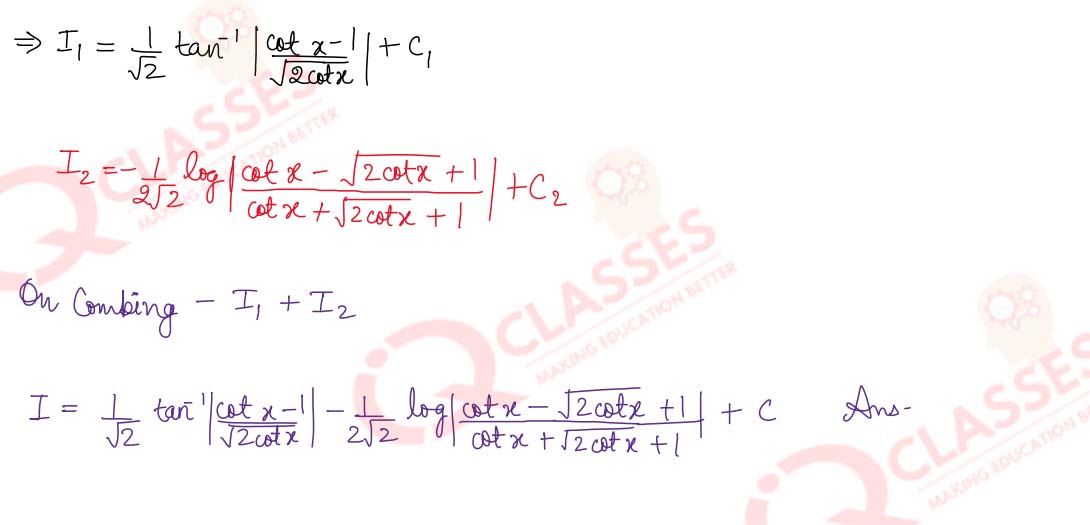 ⇒ I₁ = 1/√2 tan⁻¹ |(cot x - 1)/√(2cotx)| + C₁
I₂ = -1/(2√2) log |(cot x - √(2cotx) + 1)/(cot x + √(2cotx) + 1)| + C₂
On Combing - I₁ + I₂
I = 1/√2 tan⁻¹ |(cot x - 1)/√(2cotx)| - 1/(2√2) log |(cot x - √(2cotx) + 1)/(cot x + √(2cotx) + 1)| + C Ans-
IQ CLASSES
MAKING EDUCATION BETTER
IQ CLASSES
MAKING EDUCATION BETTER
IQ CLASSES
MAKING EDUCATION BE